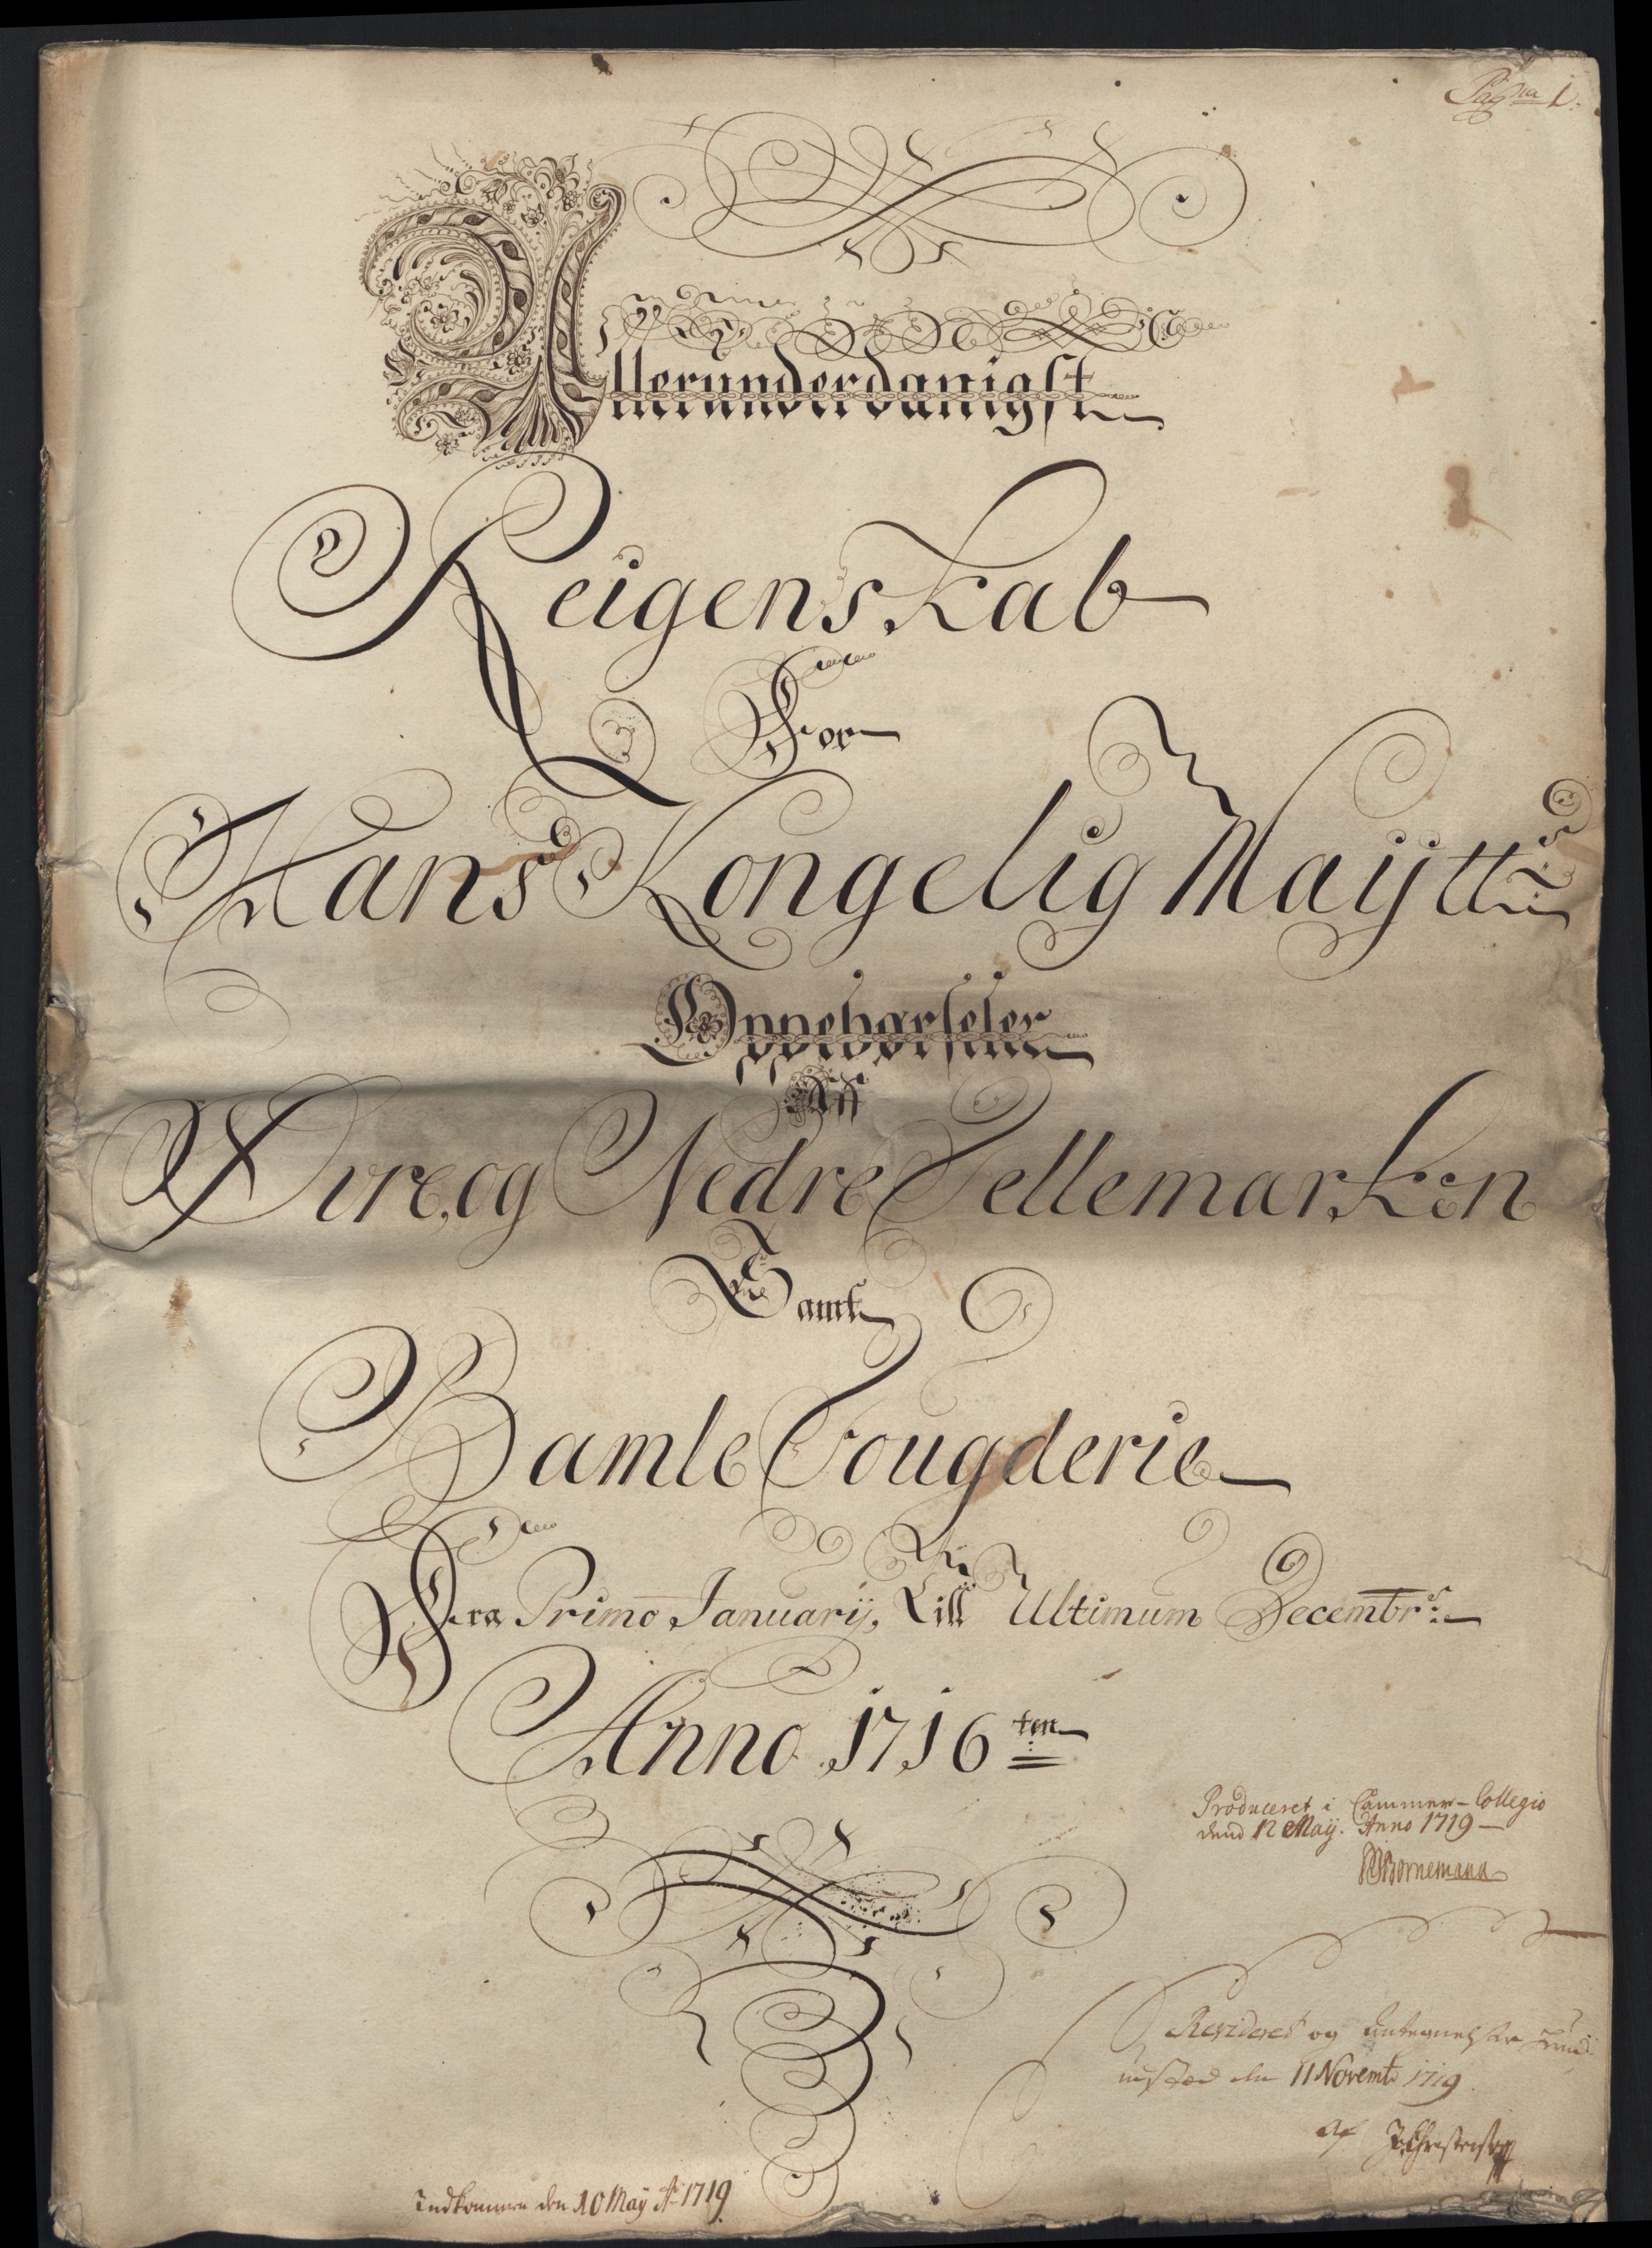 Pagna 1.
Allerunderdanigst
Reigenskab
For
Hans Kongelig Maÿtts
Oppebørseler
Aff
Øvre, og Nedre Tellemarken
Samt
Bamle Fougderie
Fra Primo Januarij, Till Ultimum Decembrs:
Anno 1716ten
Produceret i Cammer-Collegio
dend 12 Maÿ. Anno 1719
Bornemann
Revideret og antegnelser
den 11 Novemb 1719
af J Christensen
Indkommen den 10 Maÿ Ao 1719